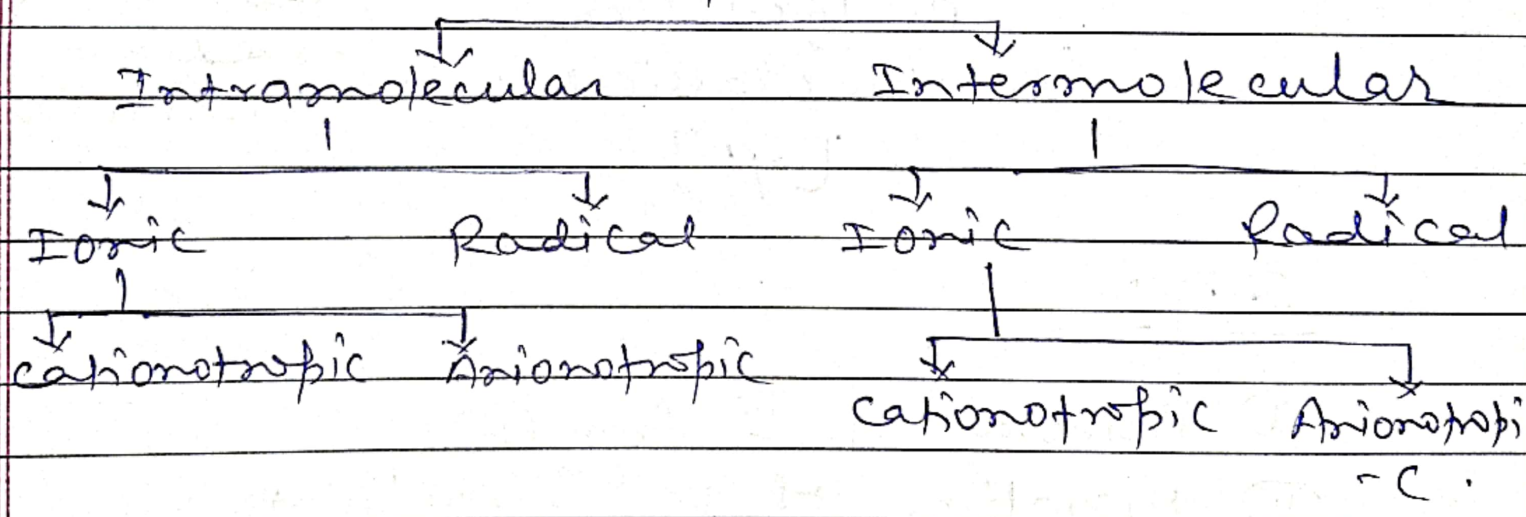 Intramolecular Intermolecular
Ionic Radical Ionic Radical
Cationotropic Anionotropic
Cationotropic Anionotropi
-c.